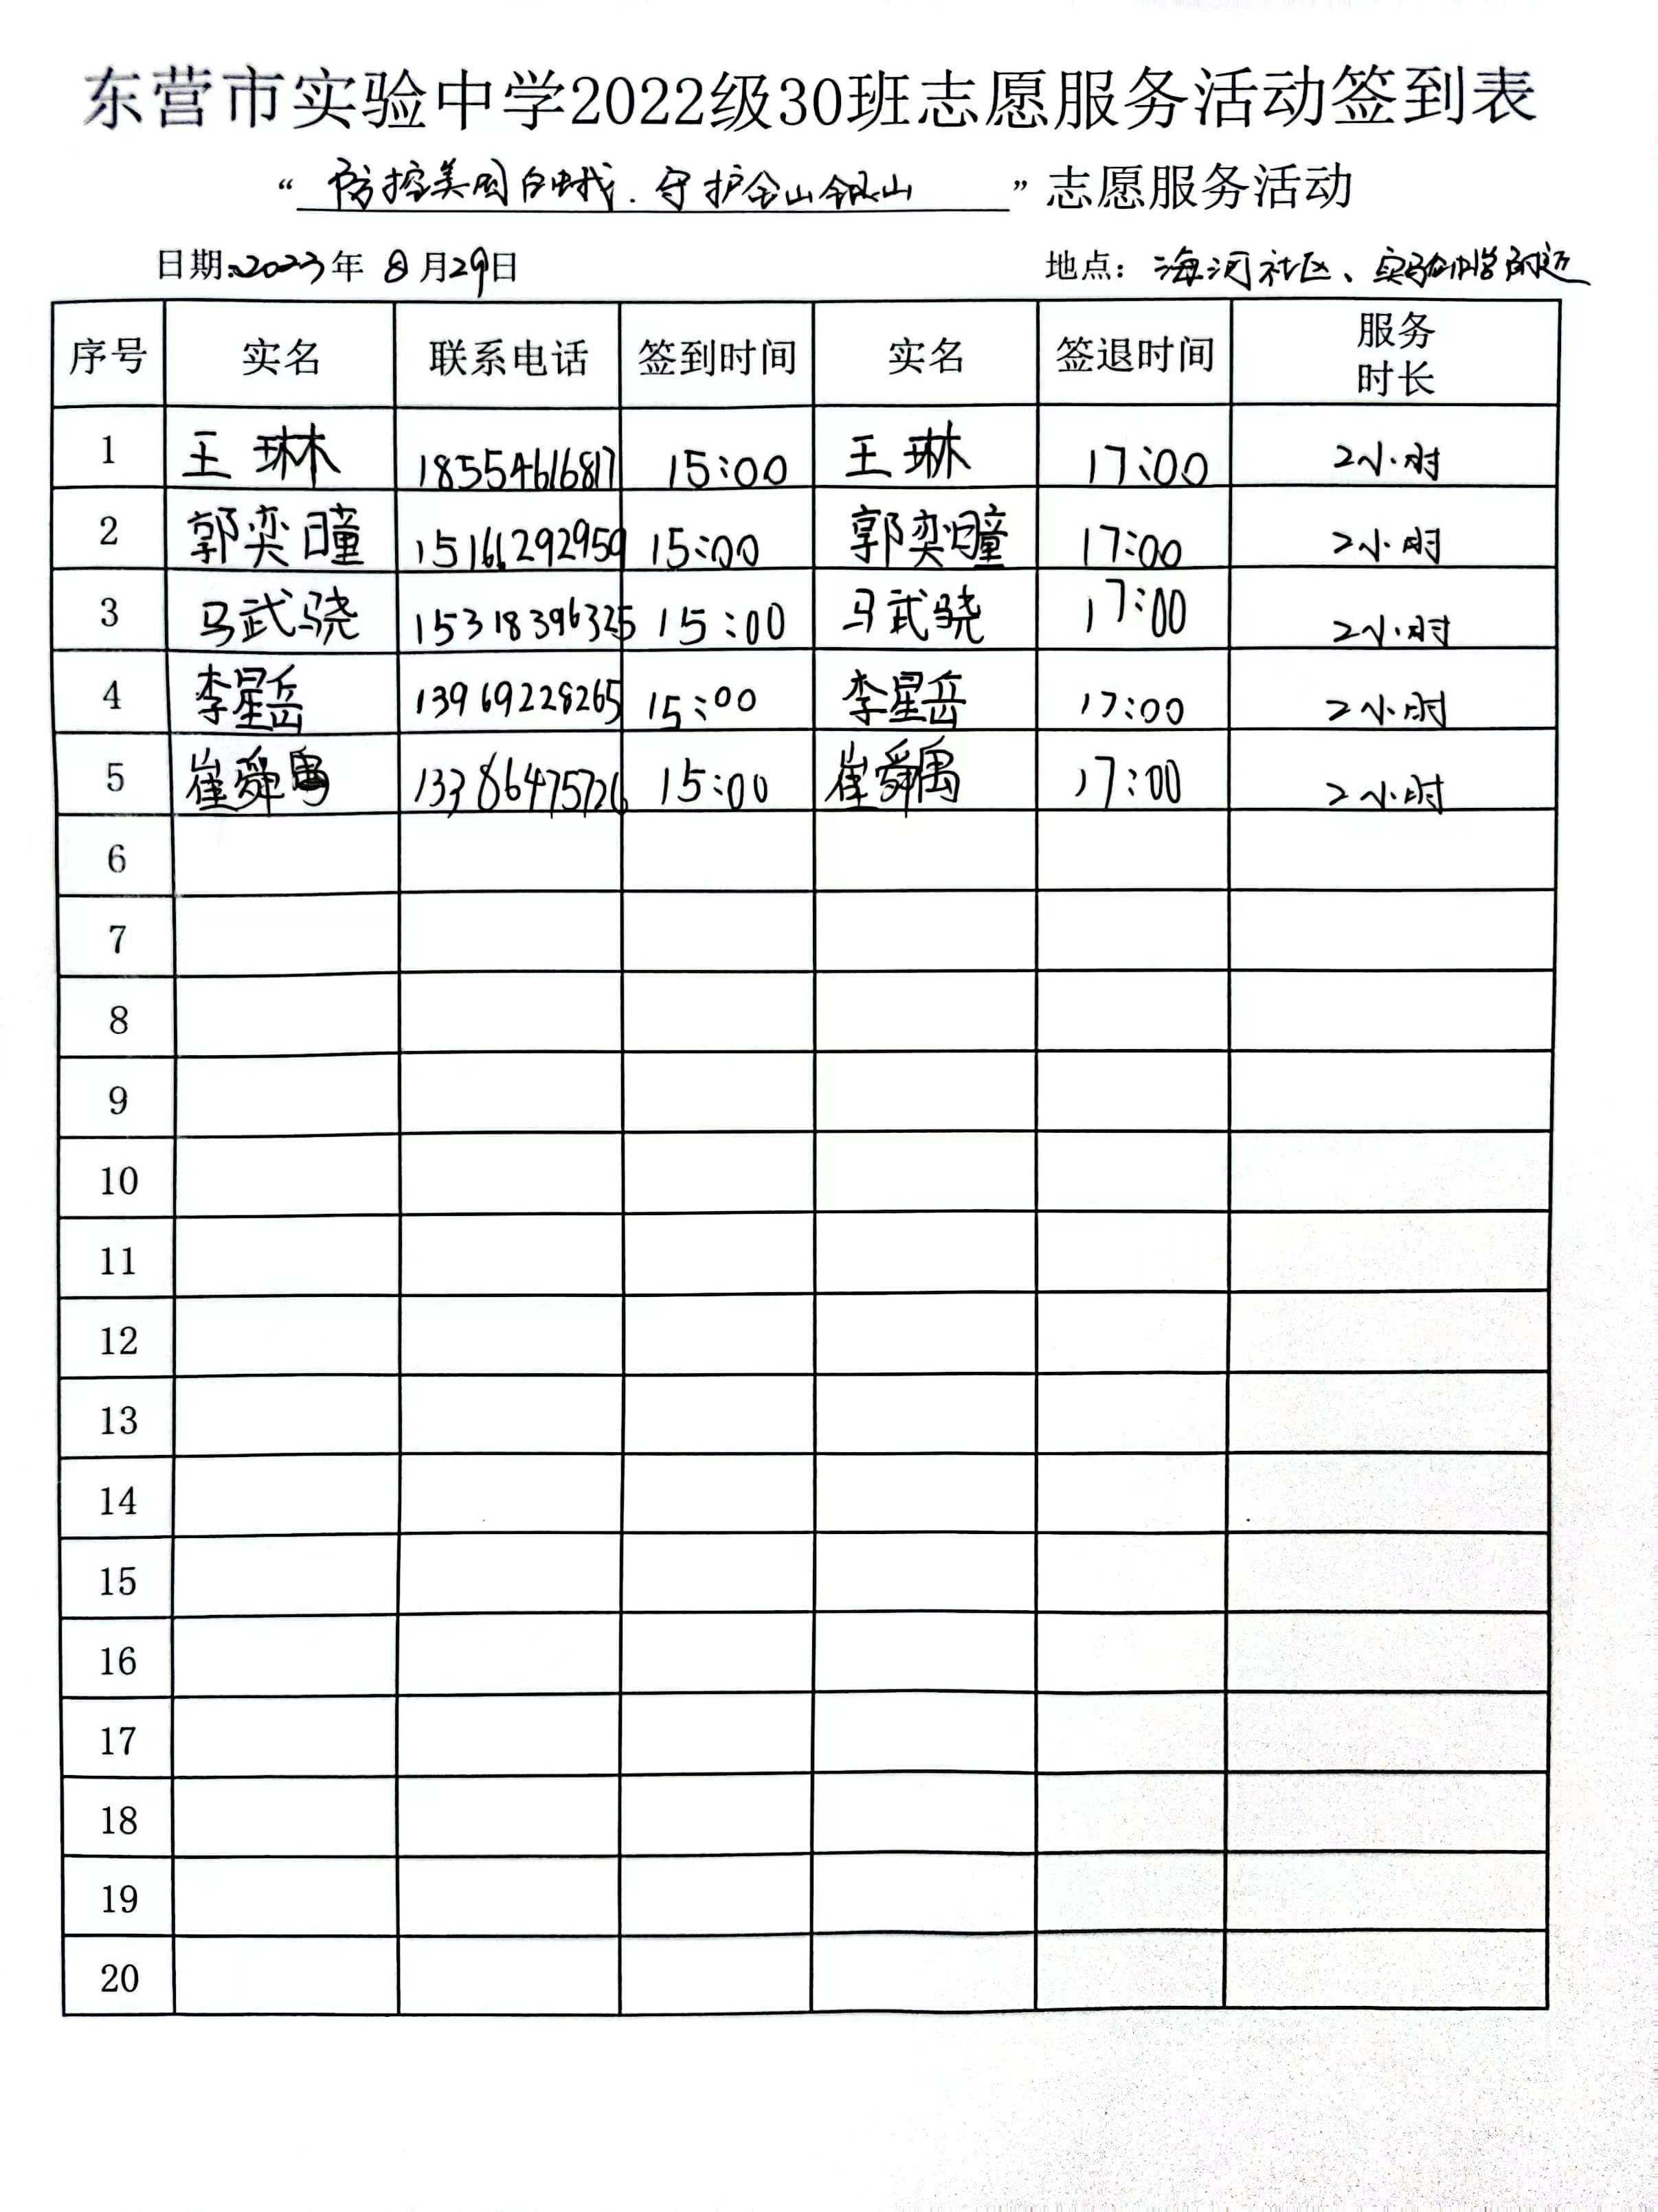 东营市实验中学2022级30班志愿服务活动签到表
“防控美国白蛾.守护金山银山”志愿服务活动
日期:2023年8月29日 地点：海河社区、实验中学附近
序号 实名 联系电话 签到时间 实名 签退时间 服务时长
1 王琳 18554616817 15:00 王琳 17:00 2小时
2 郭奕瞳 15166292959 15:00 郭奕瞳 17:00 2小时
3 马武骁 15318396325 15:00 马武骁 17:00 2小时
4 李星岳 13969228265 15:00 李星岳 17:00 2小时
5 崔舜禹 15:00 崔舜禹 17:00 2小时
6
7
8
9
10
11
12
13
14
15
16
17
18
19
20